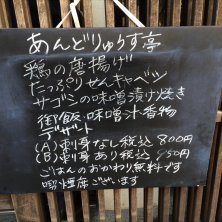 あんどりゅうす亭
鶏の唐揚げ
たっぷりせんキャベツ
サゴシの味噌漬け焼き
御飯・味噌汁・香物
デザート
(A)刺身なし税込800円
(B)刺身あり税込950円
ごはんのおかわり無料です
喫煙席ございます